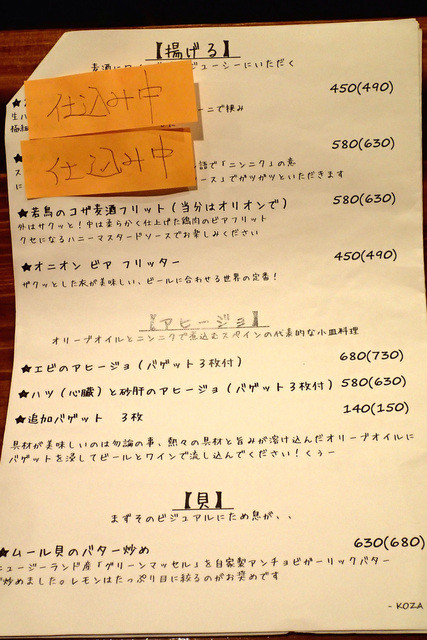 【揚げる】
麦酒に ューシーにいただく
仕込み中
450(490)
生ハ ーニで挟み
仕込み中
580(630)
語で「ニンニク」の意
に ース」でガツガツといただきます
★若鳥のコザ麦酒フリット(当分はオリオンで) 580(630)
外はサクッと!中は柔らかく仕上げた鶏肉のビアフリット
クセになるハニーマスタードソースでお楽しみください
★オニオン ビア フリッター 450(490)
ザクッとした衣が美味しい、ビールに合わせる世界の定番!
【アヒージョ】
オリーブオイルとニンニクで煮込むスペインの代表的な小皿料理
★エビのアヒージョ(バゲット3枚付) 680(730)
★ハツ(心臓)と砂肝のアヒージョ(バゲット3枚付) 580(630)
★追加バゲット 3枚 140(150)
具材が美味しいのは勿論の事、熱々の具材と旨みが溶け込んだオリーブオイルに
バゲットを浸してビールとワインで流し込んでください!くぅー
【貝】
まずそのビジュアルにため息が、、
★ムール貝のバター炒め 630(680)
ニュージーランド産「グリーンマッセル」を自家製アンチョビガーリックバター
で炒めました。レモンはたっぷり目に絞るのがお奨めです
- KOZA